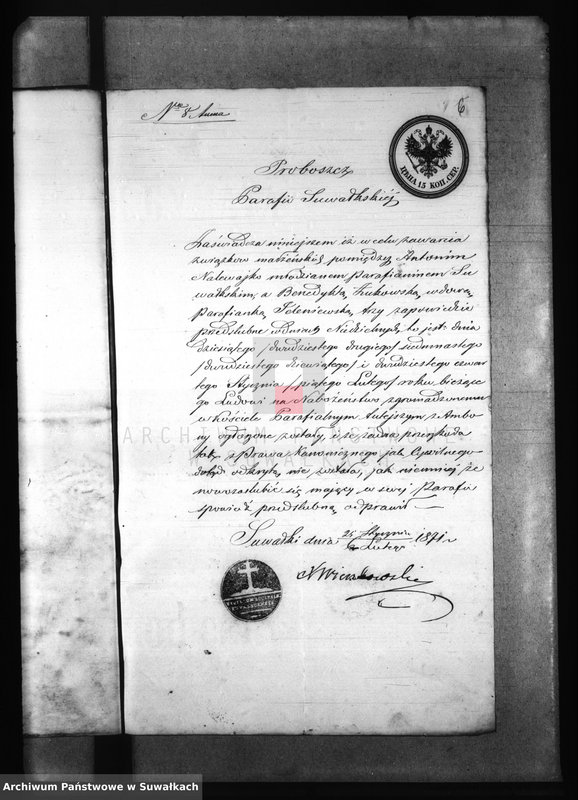 6
Nro 8 Anna
ЦѢНА 15 КОП. СЕР.
Proboszcz
Parafii Suwałkskiéj
Zaświadcza niniejszem iż w celu zawarcia
związków małżeńskich pomiędzy Antonim
Nalewajko młodzianem Parafianinem Su
wałkskim, a Benedyktą Żukowską wdową
Parafianką Jeleniewską trzy zapowiedzie
przedślubne w dniach Niedzielnych to jest: dnia
dziesiątego /dwudziestego drugiego/ siedmnastego
/dwudziestego dziewiątego/ i dwudziestego czwar
tego Stycznia /piątego Lutego/ roku bieżące
go Ludowi na Nabożeństwo zgromadzonemu
w Kościele Parafialnym tutejszym z Ambo
ny ogłoszone zostały, i że żadna przeszkoda
tak z Prawa Kanonicznego jak Cywilnego
odkrytą nie została, jak niemniej że
nowozaślubić się mający w swej Parafii
spowiedź przedślubną odprawił
Suwałki dnia 25 Stycznia / Lutego 1871 r
ARCHIWUM PAŃSTWOWE
W SUWAŁKACH
Archiwum Państwowe w Suwałkach